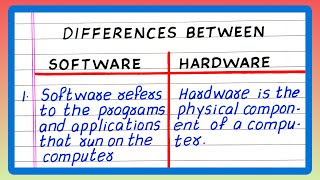 DIFFERENCES BETWEEN
SOFTWARE
HARDWARE
1. Software refers
to the programs
and applications
that run on the
computer
Hardware is the
physical compon-
ent of a compu-
ter.